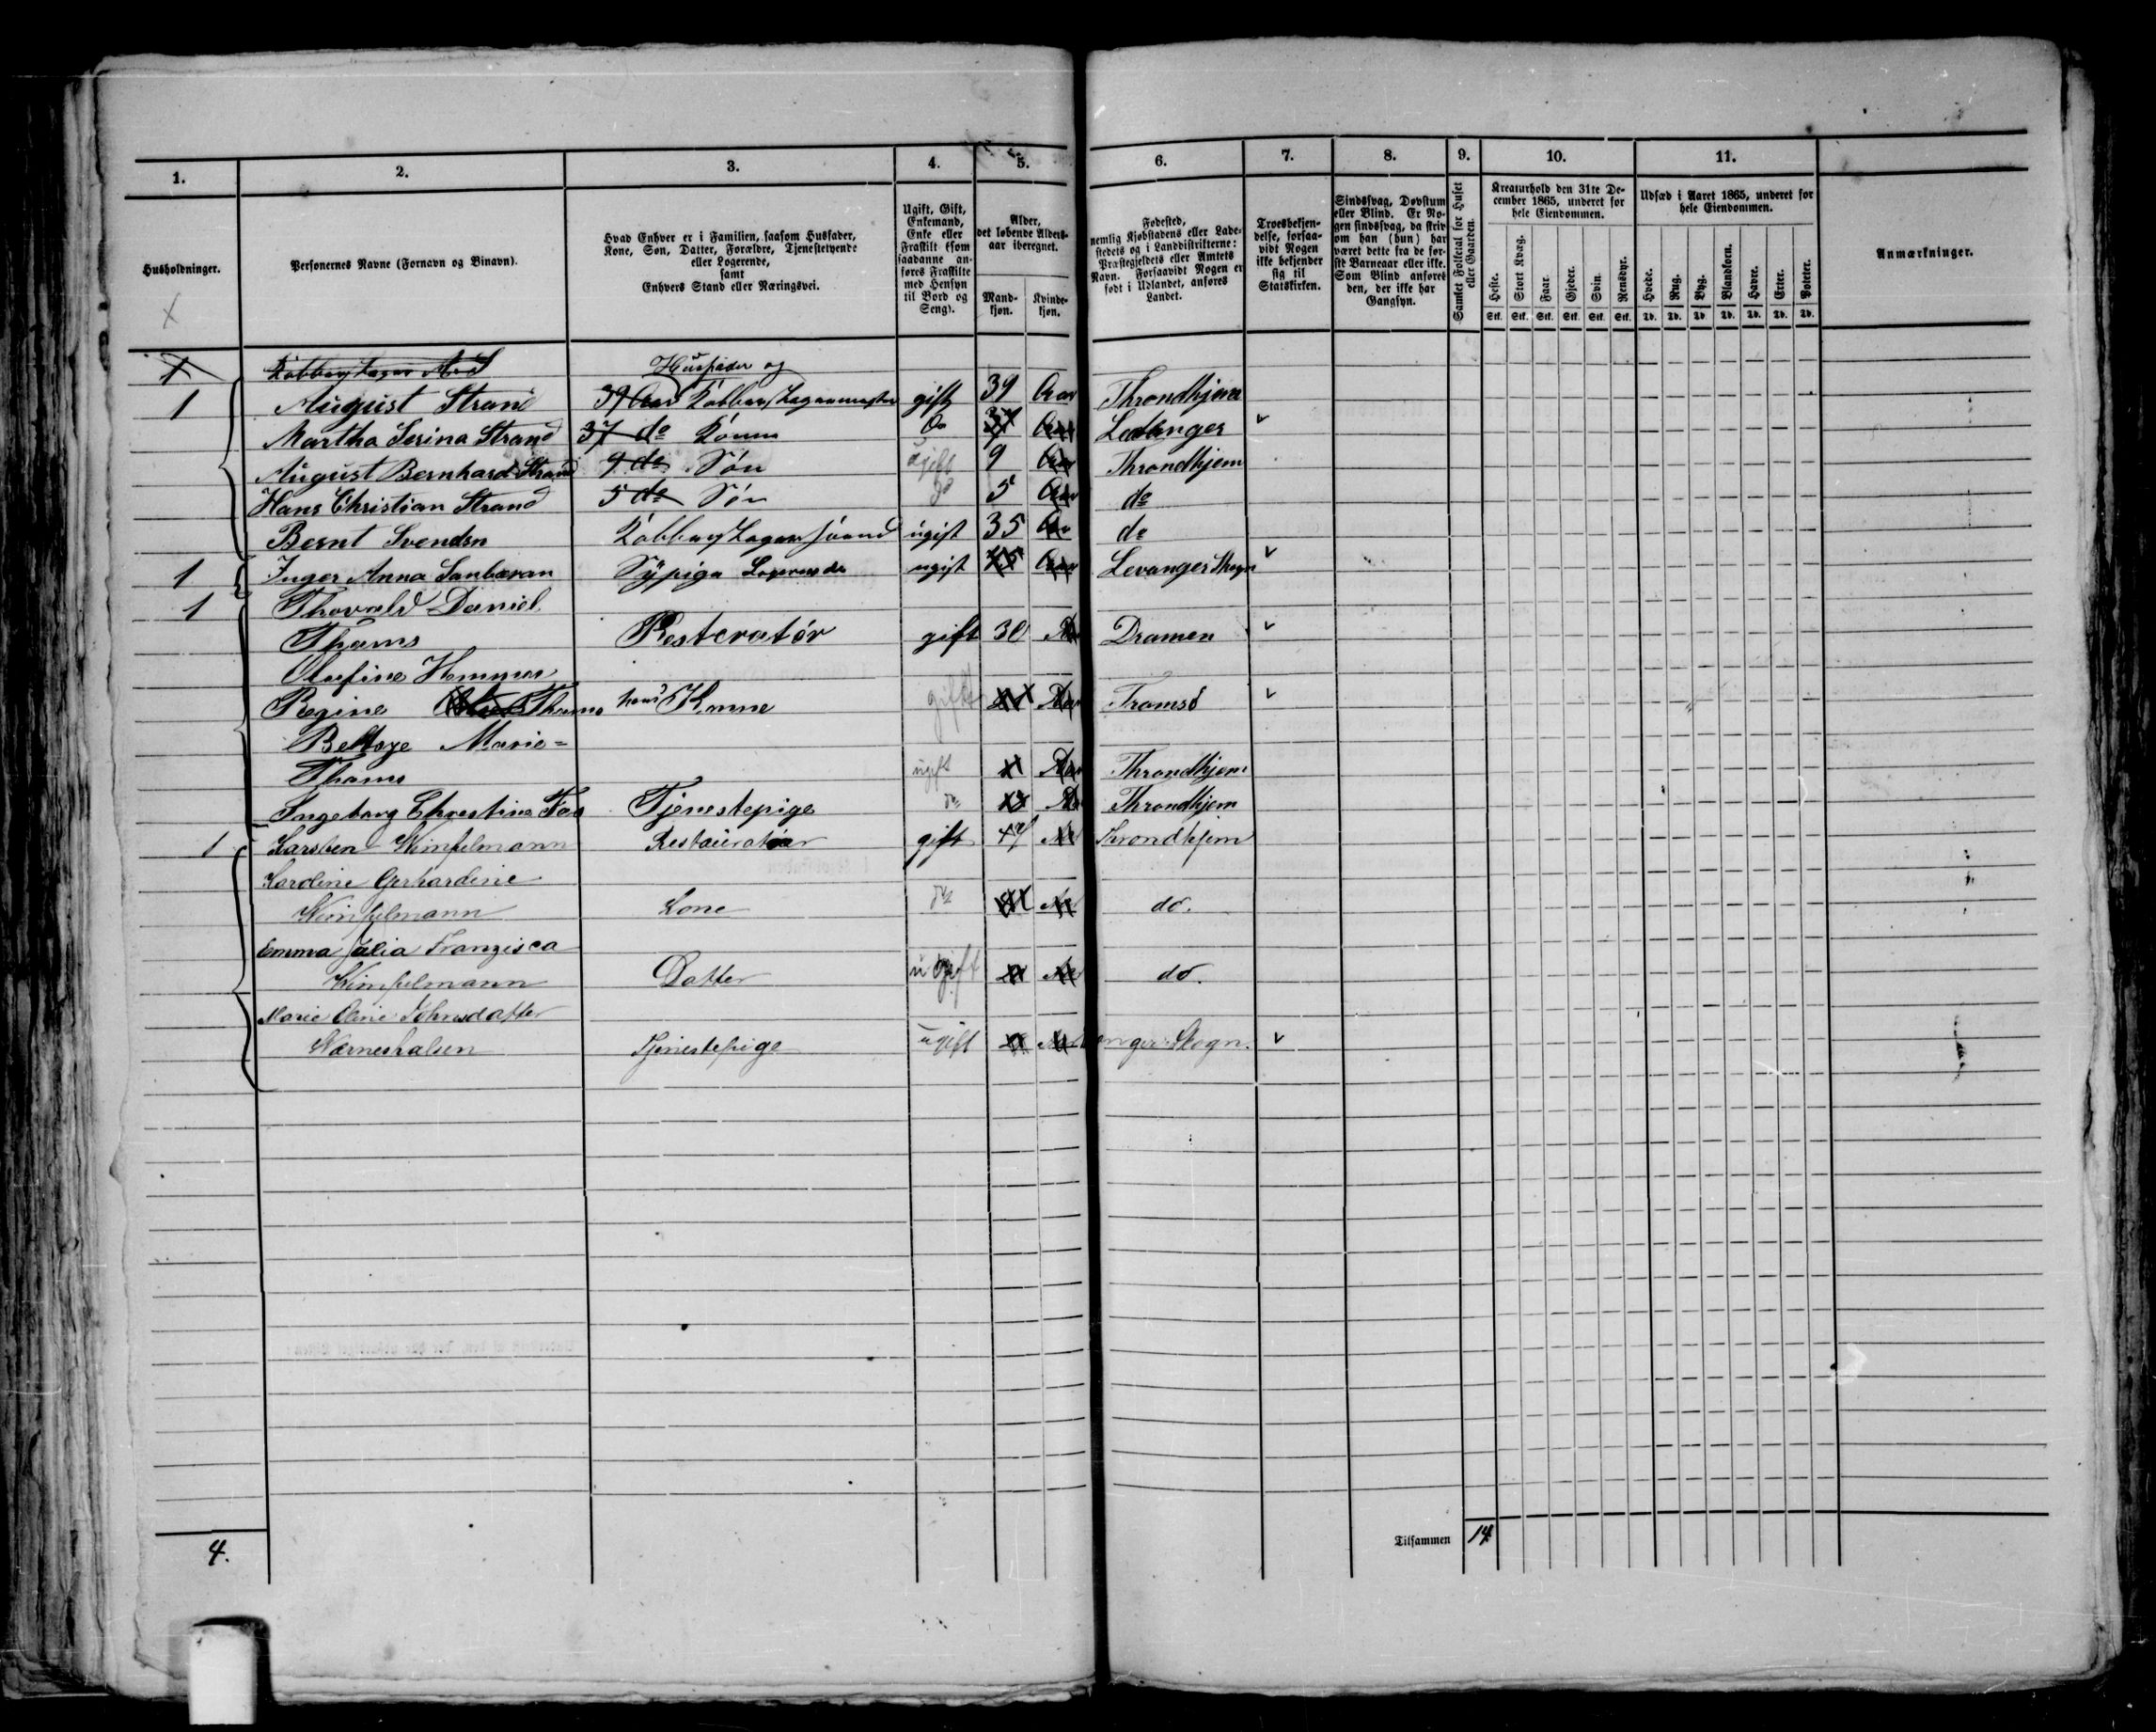 1. 2. 3. 4. 5. 6. 7. 8. 9. 10. 11.
Husholdninger.
Personernes Navne (Fornavn og Binavn).
Hvad Enhver er i Familien, saasom Husfader,
Kone, Søn, Datter, Forældre, Tjenestetyende
eller Logerende,
samt
Enhvers Stand eller Næringsvei.
Ugift, Gift,
Enkemand,
Enke eller
Fraskilt (som
saadanne an-
føres Fraskilte
med Hensyn
til Bord og
Seng).
Alder,
det løbende Alders-
aar iberegnet.
Mand-
kjøn.
Kvinde-
kjøn.
Fødested,
nemlig Kjøbstadens eller Lade-
stedets og i Landdistrikterne:
Præstegjeldets eller Amtets
Navn. Forsaavidt Nogen er
født i Udlandet, anføres
Landet.
Troesbekjen-
delse, forsaa-
vidt Nogen
ikke bekjender
sig til
Statskirken.
Sindssvag, Døvstum
eller Blind. Er No-
gen sindssvag, da skriv
om han (hun) har
været dette fra de før-
ste Barneaar eller ikke.
Som Blind anføres
den, der ikke har
Gangsyn.
Samlet Folketal for Huset
eller Gaarden.
Kreaturhold den 31te De-
cember 1865, underet for
hele Eiendommen.
Heste. Stort Kvæg. Faar. Gjeder. Svin. Rensdyr.
Stk. Stk. Stk. Stk. Stk. Stk.
Udsæd i Aaret 1865, underet for
hele Eiendommen.
Hvede. Rug. Byg. Blandkorn. Havre. Erter. Poteter.
Td. Td. Td. Td. Td. Td. Td.
Anmærkninger.
Husfader og
1 August Strand 39 Aar gift 39 Aar Throndhjem
Martha Serina Strand 37 do Konne do 37 Aar Levanger
August Bernhard Strand 9 do Søn ugift 9 Aar Throndhjem
Hans Christian Strand 5 do Søn do 5 Aar do
Bernt Svendsn ugift 35 Aar do
1 Inger Anna Sypige Logerende ugift Aar Levanger Skogn
1 Thorvald Daniel
Thams Resteratør gift 30 Aar Dramen
Olufine Hemmes
Regine Thams hans Konne gift Aar Tromsø
Marie
Thams ugift Aar Throndhjem
Ingeborg Tjenestepige do Aar Throndhjem
1 Karsten Wimpelmann Restauratør gift 47 Aar Throndhjem
Kardine Gerhardine
Wimpelmann Kone do do.
Emma Julia Franzisca
Wimpelmann Datter ugift do.
Marie Oline Johnsdatter
Værneshalsen Tjenestepige ugift Skogn.
4.
Tilsammen 14